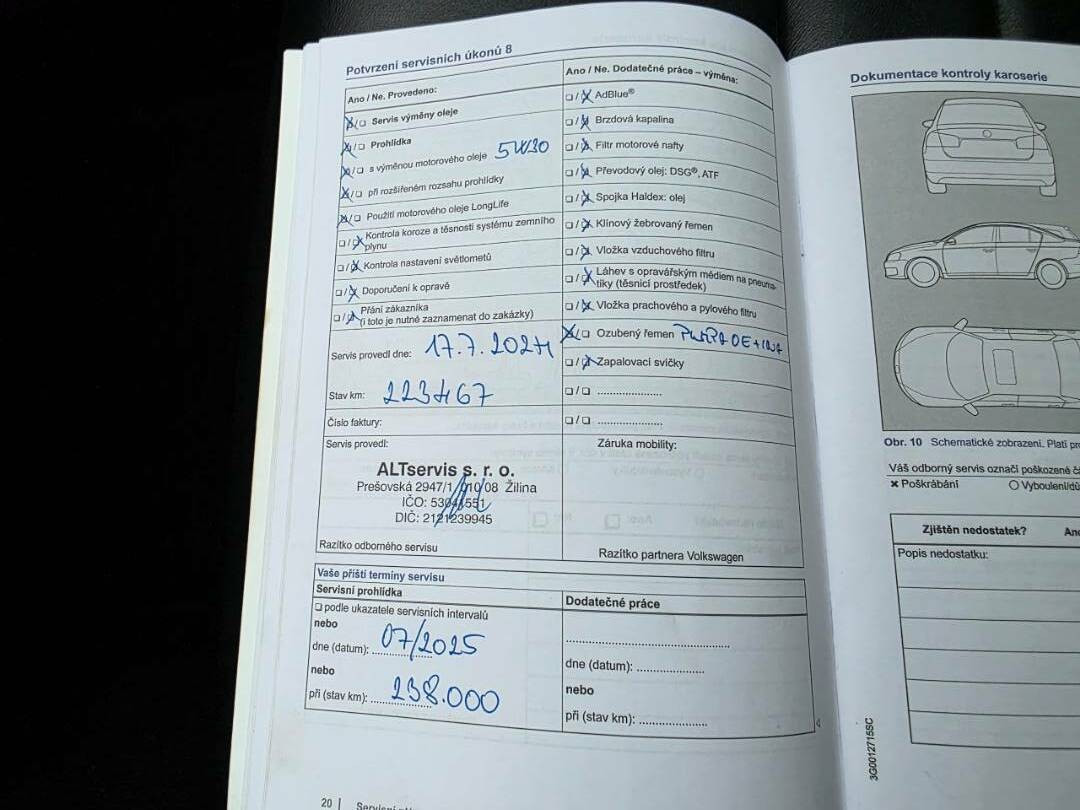 Potvrzení servisních úkonů 8
Ano / Ne. Provedeno:
Servis výměny oleje
Prohlídka
s výměnou motorového oleje 5W30
při rozšířeném rozsahu prohlídky
Použití motorového oleje LongLife
Kontrola koroze a těsnosti systému zemního
plynu
Kontrola nastavení světlometů
Doporučení k opravě
Přání zákazníka
(i toto je nutné zaznamenat do zakázky)
Servis provedl dne: 17.7.2024
Stav km: 223467
Číslo faktury:
Servis provedl:
ALTservis s. r. o.
Prešovská 2947/1, 010 08 Žilina
IČO: 53041551
DIČ: 2121239945
Razítko odborného servisu
Ano / Ne. Dodatečné práce – výměna:
AdBlue®
Brzdová kapalina
Filtr motorové nafty
Převodový olej: DSG®, ATF
Spojka Haldex: olej
Klínový žebrovaný řemen
Vložka vzduchového filtru
Láhev s opravářským médiem na pneuma-
tiky (těsnicí prostředek)
Vložka prachového a pylového filtru
Ozubený řemen
Zapalovací svíčky
Záruka mobility:
Razítko partnera Volkswagen
Vaše příští termíny servisu
Servisní prohlídka
podle ukazatele servisních intervalů
nebo
dne (datum): 07/2025
nebo
při (stav km): 238.000
Dodatečné práce
dne (datum):
nebo
při (stav km):
20
Dokumentace kontroly karoserie
Obr. 10 Schematické zobrazení. Platí
Váš odborný servis označí poškozené
× Poškrábání
Vyboulení/
Zjištěn nedostatek?
Popis nedostatku:
3G0012715SC